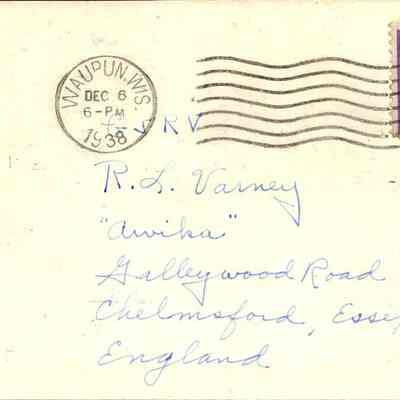 WAUPUN, WIS.
DEC 6
6-PM
1938
R V
R. L. Varney
"Awika"
Galleywood Road
Chelmsford, Esse
England